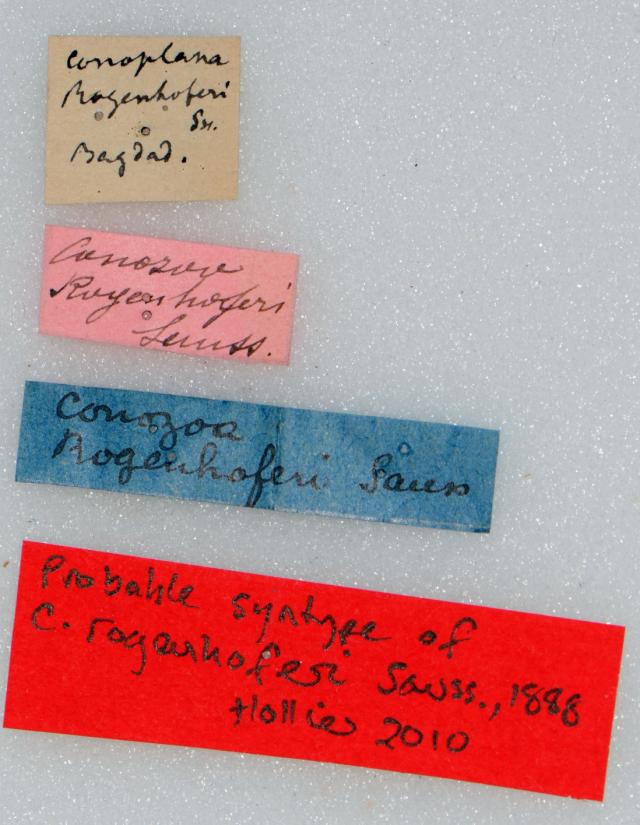 Conoplana
Rogenhoferi
Ss.
Bagdad.
Conozoa
Rogenhoferi
Sauss.
Conozoa
Rogenhoferi Sauss
Probable syntype of
C. rogenhoferi Sauss., 1888
Hollier 2010